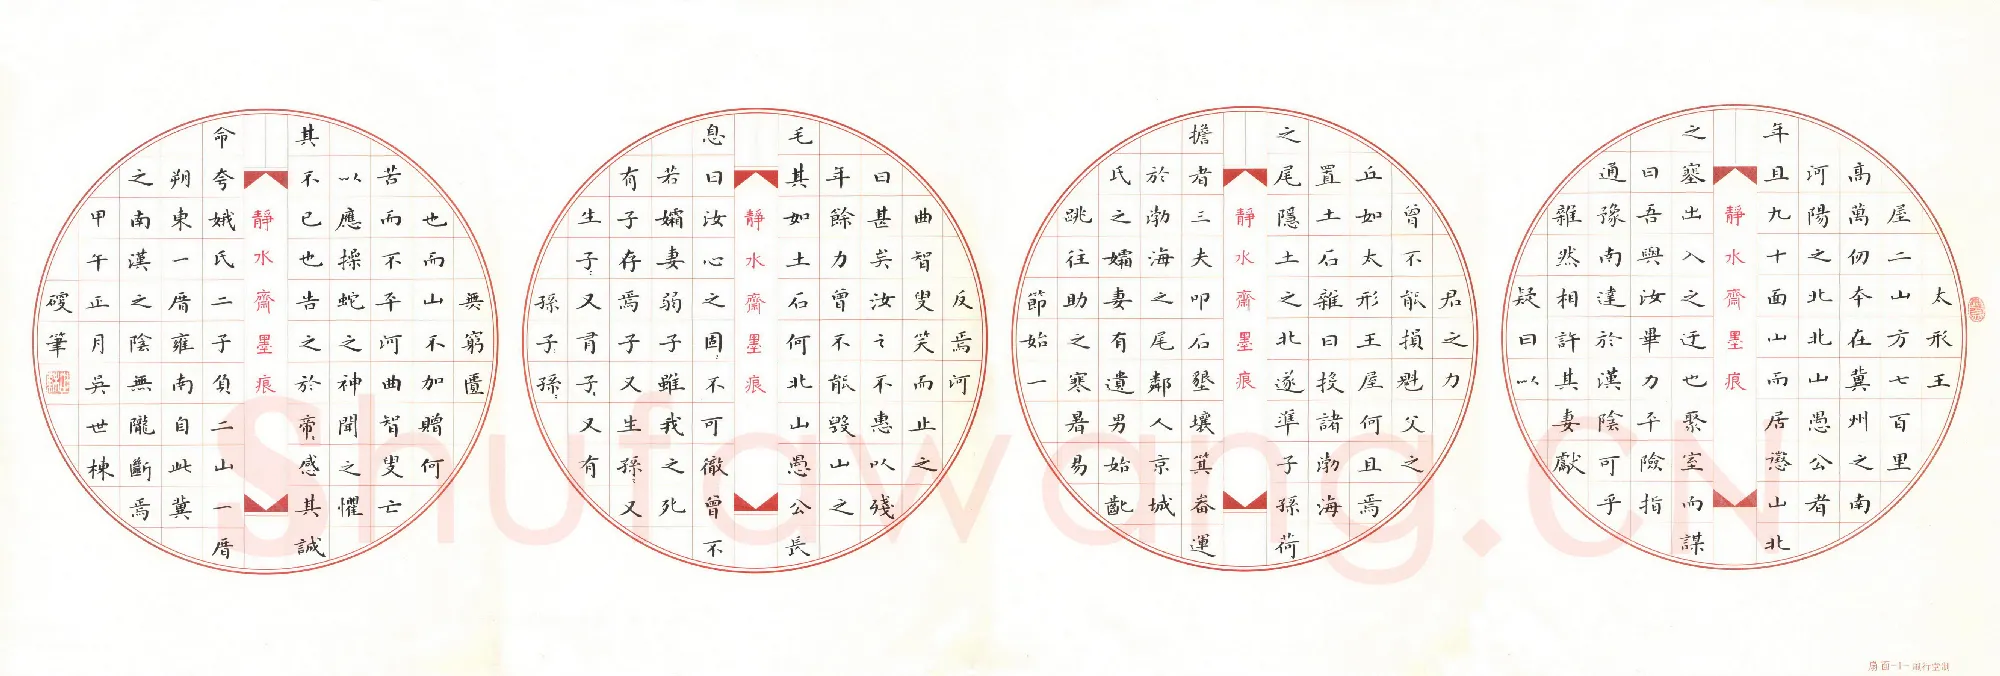 太形王
屋二山方七百里
高萬仞本在冀州之南
河陽之北北山愚公者
年且九十面山而居懲山北
靜水齋墨痕
之塞出入之迂也聚室而謀
曰吾與汝畢力平險指
通豫南達於漢陰可乎
雜然相許其妻獻
疑曰以
君之力
曾不能損魁父之
丘如太形王屋何且焉
置土石雜曰投諸渤海
之尾隱土之北遂準子孫荷
靜水齋墨痕
擔者三夫叩石墾壤箕畚運
於渤海之尾鄰人京城
氏之孀妻有遺男始齔
跳往助之寒暑易
節始一
反焉河
曲智叟笑而止之
曰甚矣汝之不惠以殘
年餘力曾不能毀山之
毛其如土石何北山愚公長
靜水齋墨痕
息曰汝心之固:不可徹曾不
若孀妻弱子雖我之死
有子存焉子又生孫:又
生子:又有子:又有
孫子:孫:
無窮匱
也而山不加贈何
苦而不平河曲智叟亡
以應操蛇之神聞之懼
其不已也告之於帝:感其誠
靜水齋墨痕
命夸娥氏二子負二山一厝
朔東一厝雍南自此冀
之南漢之陰無隴斷焉
甲午正月吳世棟
硬筆
Shufawang.CN
扇面-1-風行堂制